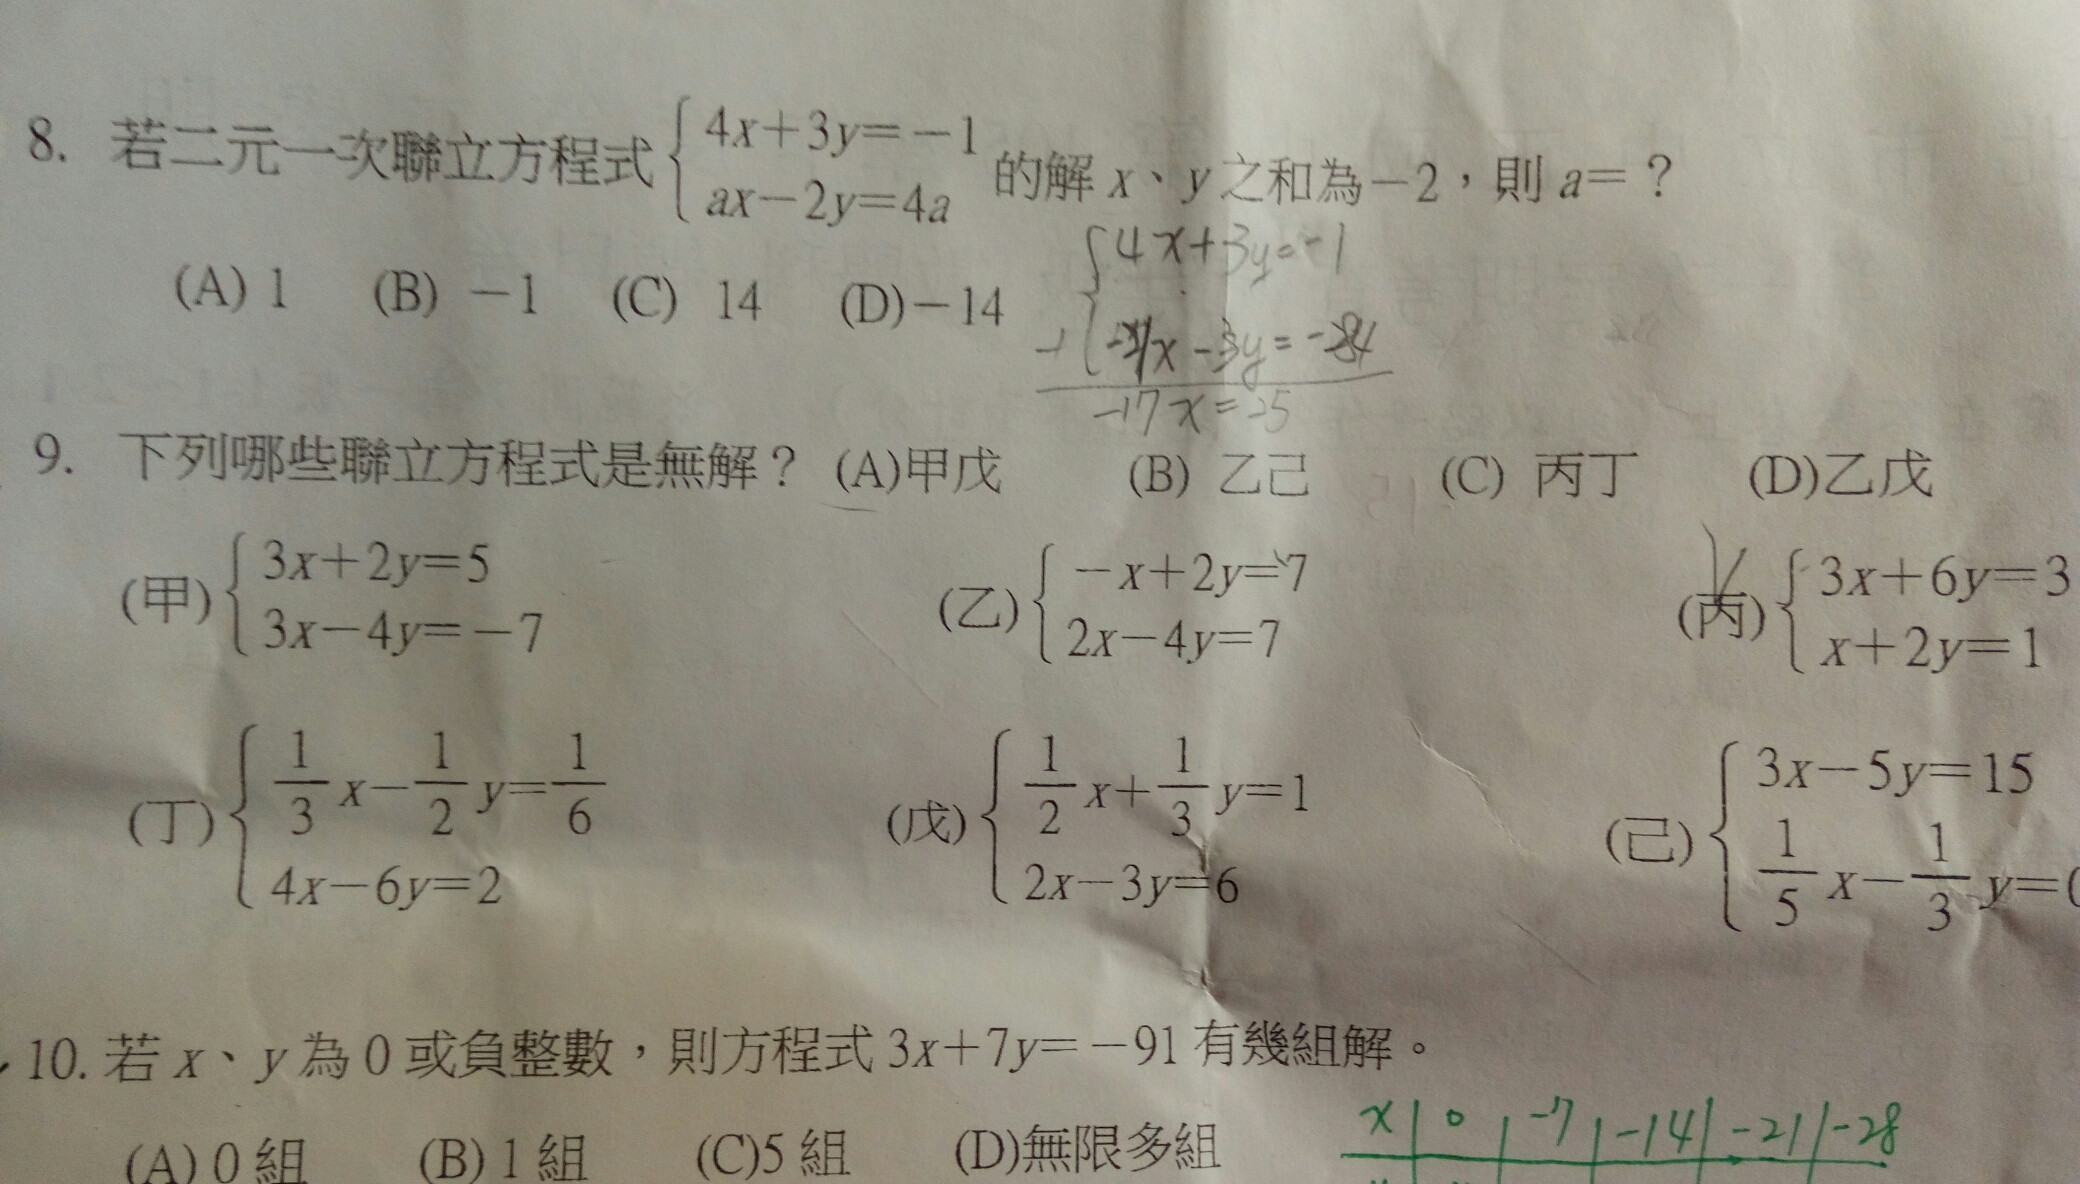 8. 若二元一次聯立方程式 { 4x+3y=-1
ax-2y=4a 的解 x、y 之和為-2，則 a=？
{ 4x+3y=-1
(A) 1 (B) -1 (C) 14 (D)-14
-3y=
-17x=
9. 下列哪些聯立方程式是無解？ (A)甲戊 (B) 乙己 (C) 丙丁 (D)乙戊
(甲) { 3x+2y=5
3x-4y=-7
(乙) { -x+2y=7
2x-4y=7
(丙) { 3x+6y=3
x+2y=1
(丁) { 1/3 x-1/2 y=1/6
4x-6y=2
(戊) { 1/2 x+1/3 y=1
2x-3y=6
(己) { 3x-5y=15
1/5 x-1/3 y=
10. 若 x、y 為 0 或負整數，則方程式 3x+7y=-91 有幾組解。
x | 0 | -7 | -14 | -21 | -28
(A) 0 組 (B) 1 組 (C)5 組 (D)無限多組